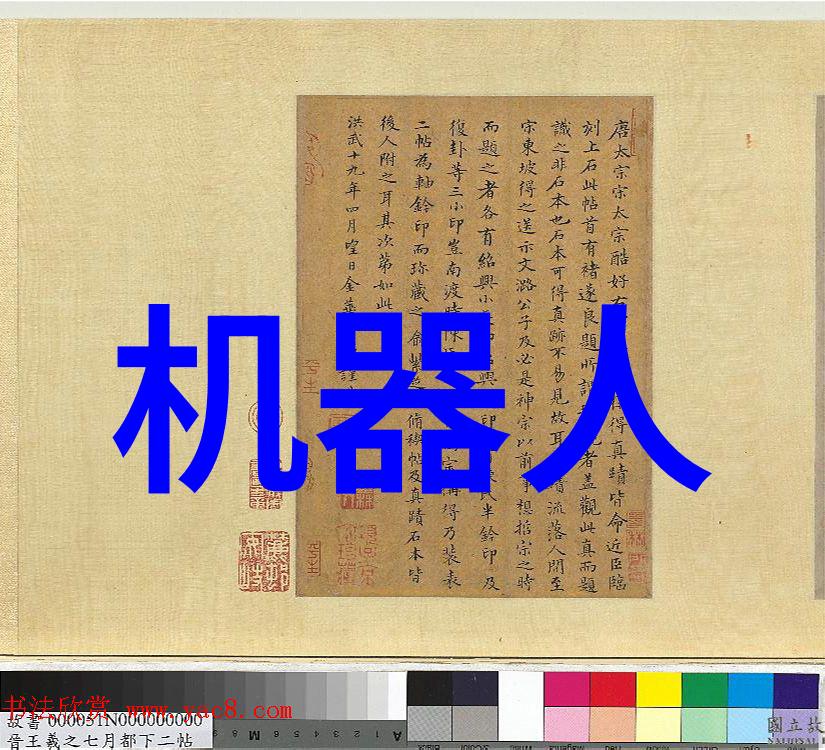 唐太宗宋太宗酷好右得真蹟皆命近臣臨
刻上石此帖首有褚遂良題所謂者蓋觀此真而題
識之非石本也石本可得真跡不易見故耳流落人間至
宗東坡得之送示文潞公子及必是神宗以前事想哲宗之時
而題之者各有紹興小興印民半鈐印及
復卦等三小印豈南渡時陳宗購得乃裝表
二帖為軸鈐印而珍藏之脩禊帖及真蹟石本皆
後人附之耳其次第如此
洪武十九年四月望日金華謹
机器人
书法欣赏 www.yac8.com
故書 000051N000000000
晉王羲之七月都下二帖
國立故